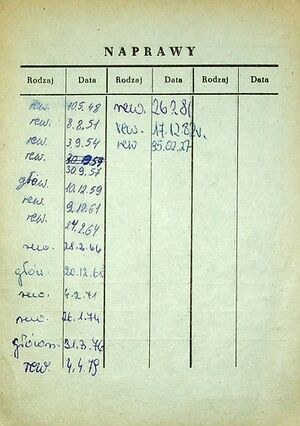 NAPRAWY
Rodzaj Data Rodzaj Data Rodzaj Data
rew. 10.5.48
rew. 8.8.51
rew. 3.9.54
rew.
30.9.57
głów. 10.12.59
rew. 9.12.61
rew.
rew. 28.2.66
głów. 20.12.68
rew. 4.2.71
rew. 26.1.74
główn. 31.3.76
rew. 4.4.79
rew.
rew. 17.12.82r.
rew 85.02.27